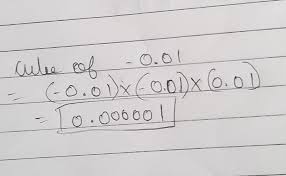 Cube of - 0.01
= (-0.01)x(-0.01)x(0.01)
= 0.000001